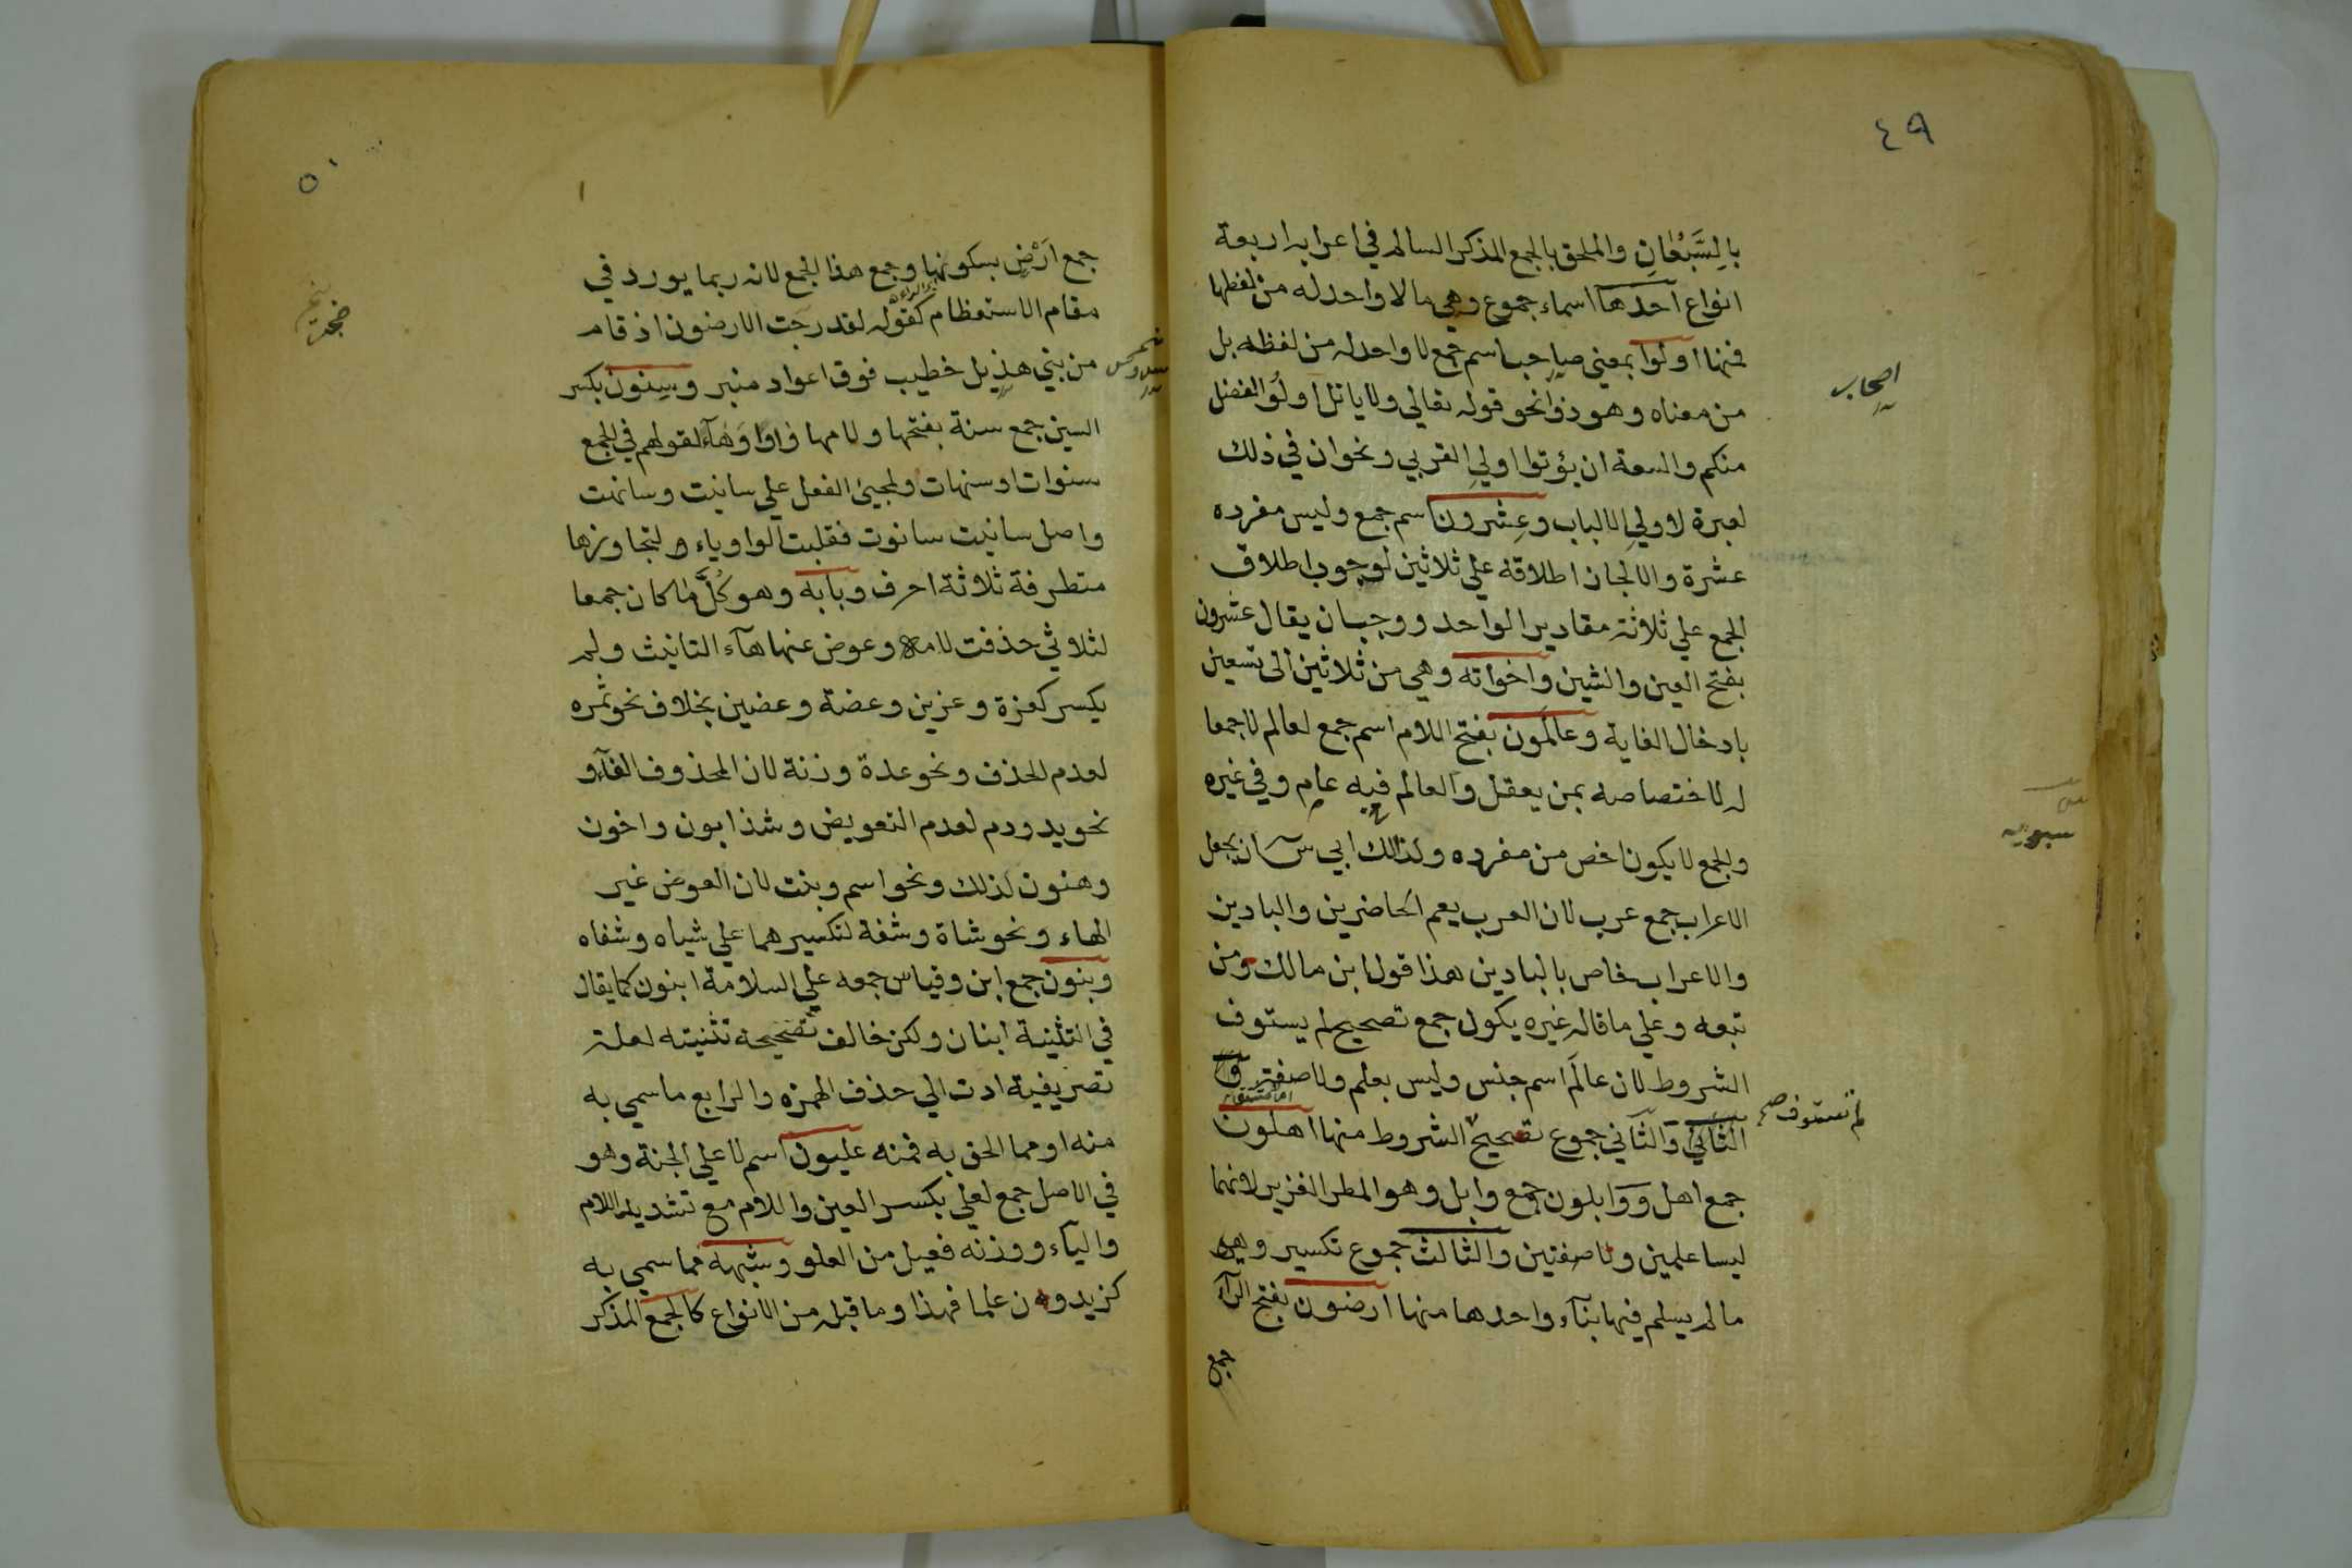 ٤٩
بالسَّبُعَانِ والملحق بالجمع المذكر السالم في اعرابه اربعة
انواع احدها اسماء جموع وهي مالا واحد له من لفظها
فمنها اولوا بمعني صاحب اسم جمع لا واحد له من لفظه بل
اصحاب
من معناه وهو ذو نحو قوله تعالي ولا ياتل اولُو الفضل
منكم والسعة ان يؤتوا اولي القربي ونحو ان في ذلك
لعبرة لاولي الالباب وعِشرون اسم جمع وليس مفرده
عشرة والا لجاز اطلاقه علي ثلاثين لوجوب اطلاق
الجمع علي ثلاثة مقادير الواحد ووجب ان يقال عشرون
بفتح العين والشين واخواته وهي من ثلاثين الى تسعين
بادخال الغاية وعالَمون بفتح اللام اسم جمع لعالم لا جمعا
له لاختصاصه بمن يعقل والعالم فيه عام وفي غيره
سيبويه
والجمع لا يكون اخص من مفرده ولذالك ابي س ان يجعل
الاعراب جمع عرب لان العرب يعم الحاضرين والبادين
والاعراب خاص بالبادين هذا قول ابن مالك ومن
تبعه وعلي ما قاله غيره يكون جمع تصحيح لم يستوف
الشروط لان عالَم اسم جنس وليس بعلم ولا صفة
لم تستوف صح
الثاني والثاني جموع تصحيح الشروط منها اهلون
جمع اهل ووابلون جمع وابل وهو المطر الغزير لانهما
ليسا علمين ولا صفتين والثالث جموع تكسير وهي
ما لم يسلم فيها بنآء واحدها منها ارضون بفتح الرآء
جمع
٥٠
جمع اَرْض بسكونها وجمع هذا الجمع لانه ربما يورد في
مقام الاستعظام كقوله لقد ضجت الارضون اذ قام
ضجت
من بني هذيل خطيب فوق اعواد منبر وسِنون بكسر
السين جمع سنة بفتحها ولامها واوا وهآء لقولهم في الجمع
سنوات او سنهات ولمجيئ الفعل علي سانيت وسانهت
واصل سانيت سانوت فقلبت الواو ياء لتجاوزها
متطرفة ثلاثة احرف وبابه وهو كُلَّ ما كان جمعا
لثلاثي حذفت لامه وعوض عنها هآء التانيث ولم
يكسر كعزة وعزين وعضة وعضين بخلاف نحو تمره
لعدم الحذف ونحو عدة وزنة لان المحذوف الفآء و
نحو يد ودم لعدم التعويض وشذ ابون واخون
وهنون لذلك ونحو اسم وبنت لان العوض غير
الهاء ونحو شاة وشفة لتكسيرهما علي شياه وشفاه
وبنون جمع ابن وقياس جمعه علي السلامة ابنون كما يقال
في التثنية ابنان ولكن خالف تصحيحه تثنيته لعلة
تصريفية ادت الي حذف الهمزه والرابع ما سمي به
منه او مما الحق به فمنه عليون اسم لاعلي الجنة وهو
في الاصل جمع لعلي بكسر العين واللام مع تشديد اللام
واليآء ووزنه فعيل من العلو وشبهه مما سمي به
كزيدون علما فهذا وما قبله من الانواع كالجمع المذكر